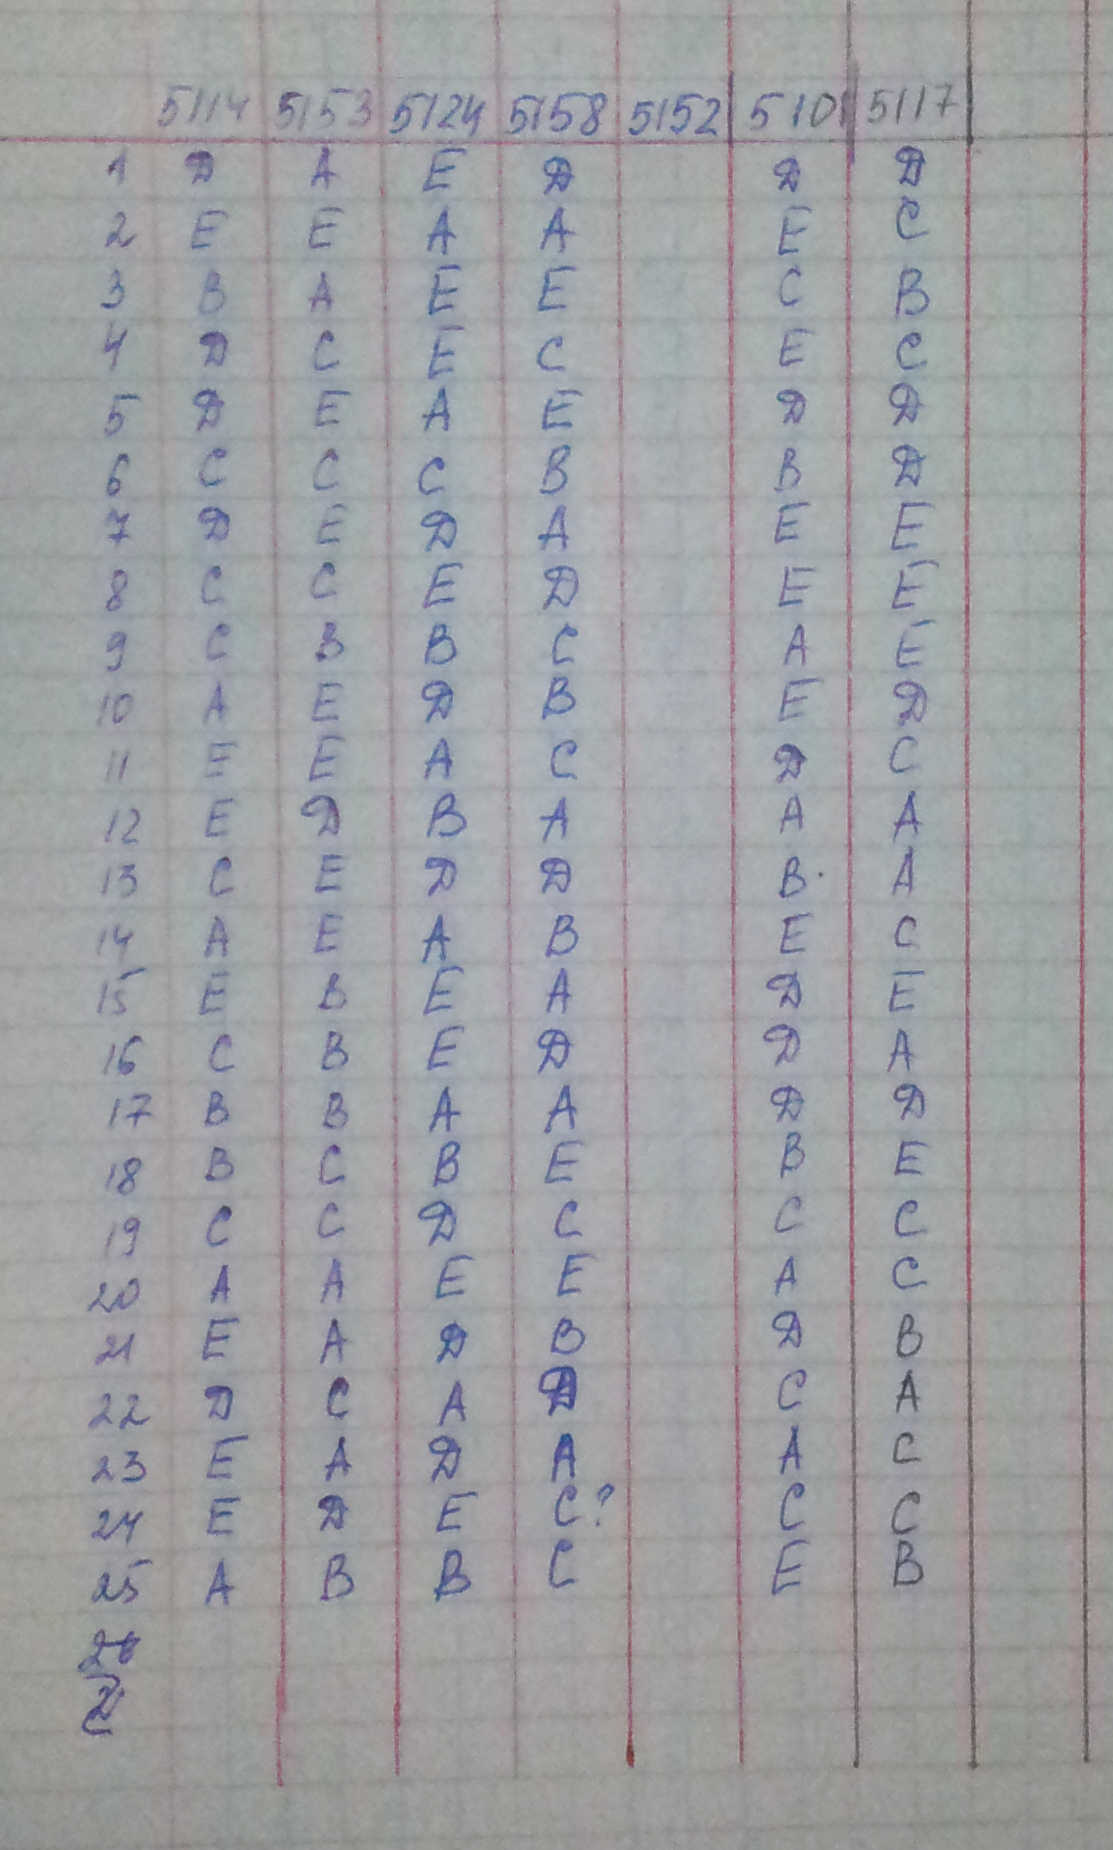 5114 5153 5124 5158 5152 5101 5117
1 D A E D D D
2 E E A A E C
3 B A E E C B
4 D C E C E C
5 D E A E D D
6 C C C B B D
7 D E D A E E
8 C C E D E E
9 C B B C A E
10 A E D B E D
11 E E A C D C
12 E D B A A A
13 C E D D B. A
14 A E A B E C
15 E B E A D E
16 C B E D D A
17 B B A A D D
18 B C B E B E
19 C C D C C C
20 A A E E A C
21 E A D B D B
22 D C A D C A
23 E A D A A C
24 E D E C? C C
25 A B B C E B
26